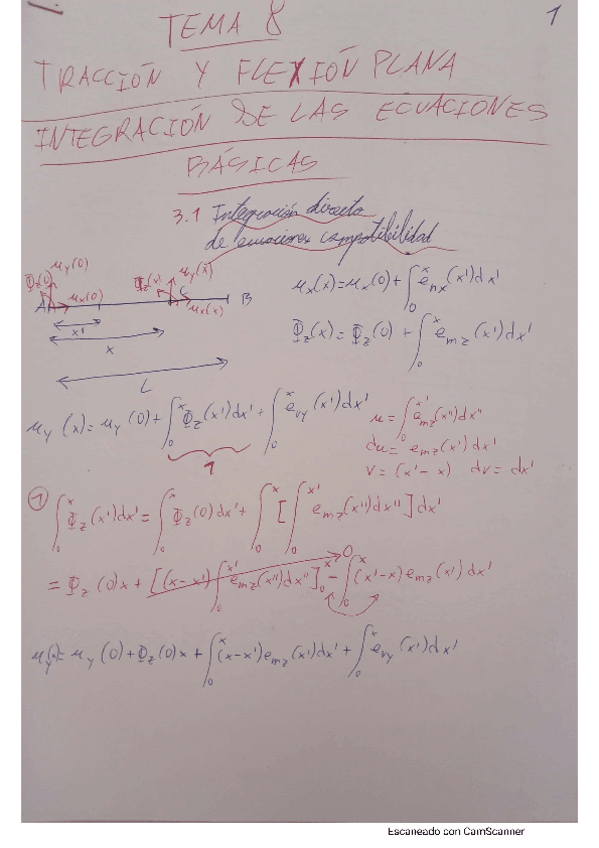 1
TEMA 8
TRACCIÓN Y FLEXIÓN PLANA
INTEGRACIÓN DE LAS ECUACIONES
BÁSICAS
3.1 Integración directa
de ecuaciones compatibilidad
Φz(0) uy(0) Φz(x) uy(x)
A ux(0) C ux(x) B
x'
x
L
ux(x) = ux(0) + ∫₀ˣ enx(x')dx'
Φz(x) = Φz(0) + ∫₀ˣ emz(x')dx'
uy(x) = uy(0) + ∫₀ˣ Φz(x')dx' + ∫₀ˣ evy(x')dx'
1
u = ∫₀ˣ' emz(x'')dx''
du = emz(x')dx'
v = (x'-x) dv = dx'
① ∫₀ˣ Φz(x')dx' = ∫₀ˣ Φz(0)dx' + ∫₀ˣ [∫₀ˣ' emz(x'')dx'']dx'
= Φz(0)x + [(x-x')∫₀ˣ' emz(x'')dx'']₀ˣ 0 - ∫₀ˣ (x'-x)emz(x')dx'
uy(x) = uy(0) + Φz(0)x + ∫₀ˣ (x-x')emz(x')dx' + ∫₀ˣ evy(x')dx'
Escaneado con CamScanner